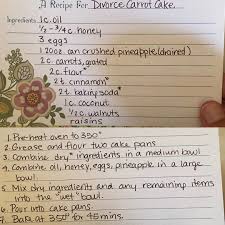 A Recipe For Divorce Carrot Cake
Ingredients 1c. oil
1/2 - 3/4 c. honey
3 eggs
1 20oz can crushed pineapple (drained)
2 c. carrots, grated
2 c. flour*
2 t. cinnamon*
2 t. baking soda*
1 c. coconut
1/2 c. walnuts
raisins
1. Pre-heat oven to 350°
2. Grease and flour two cake pans.
3. Combine dry* ingredients in a medium bowl
4. Combine oil, honey, eggs, pineapple in a large
bowl.
5. Mix dry ingredients and any remaining items
into the "wet" bowl.
6. Pour into cake pans.
7. Bake at 350° for 45 mins.